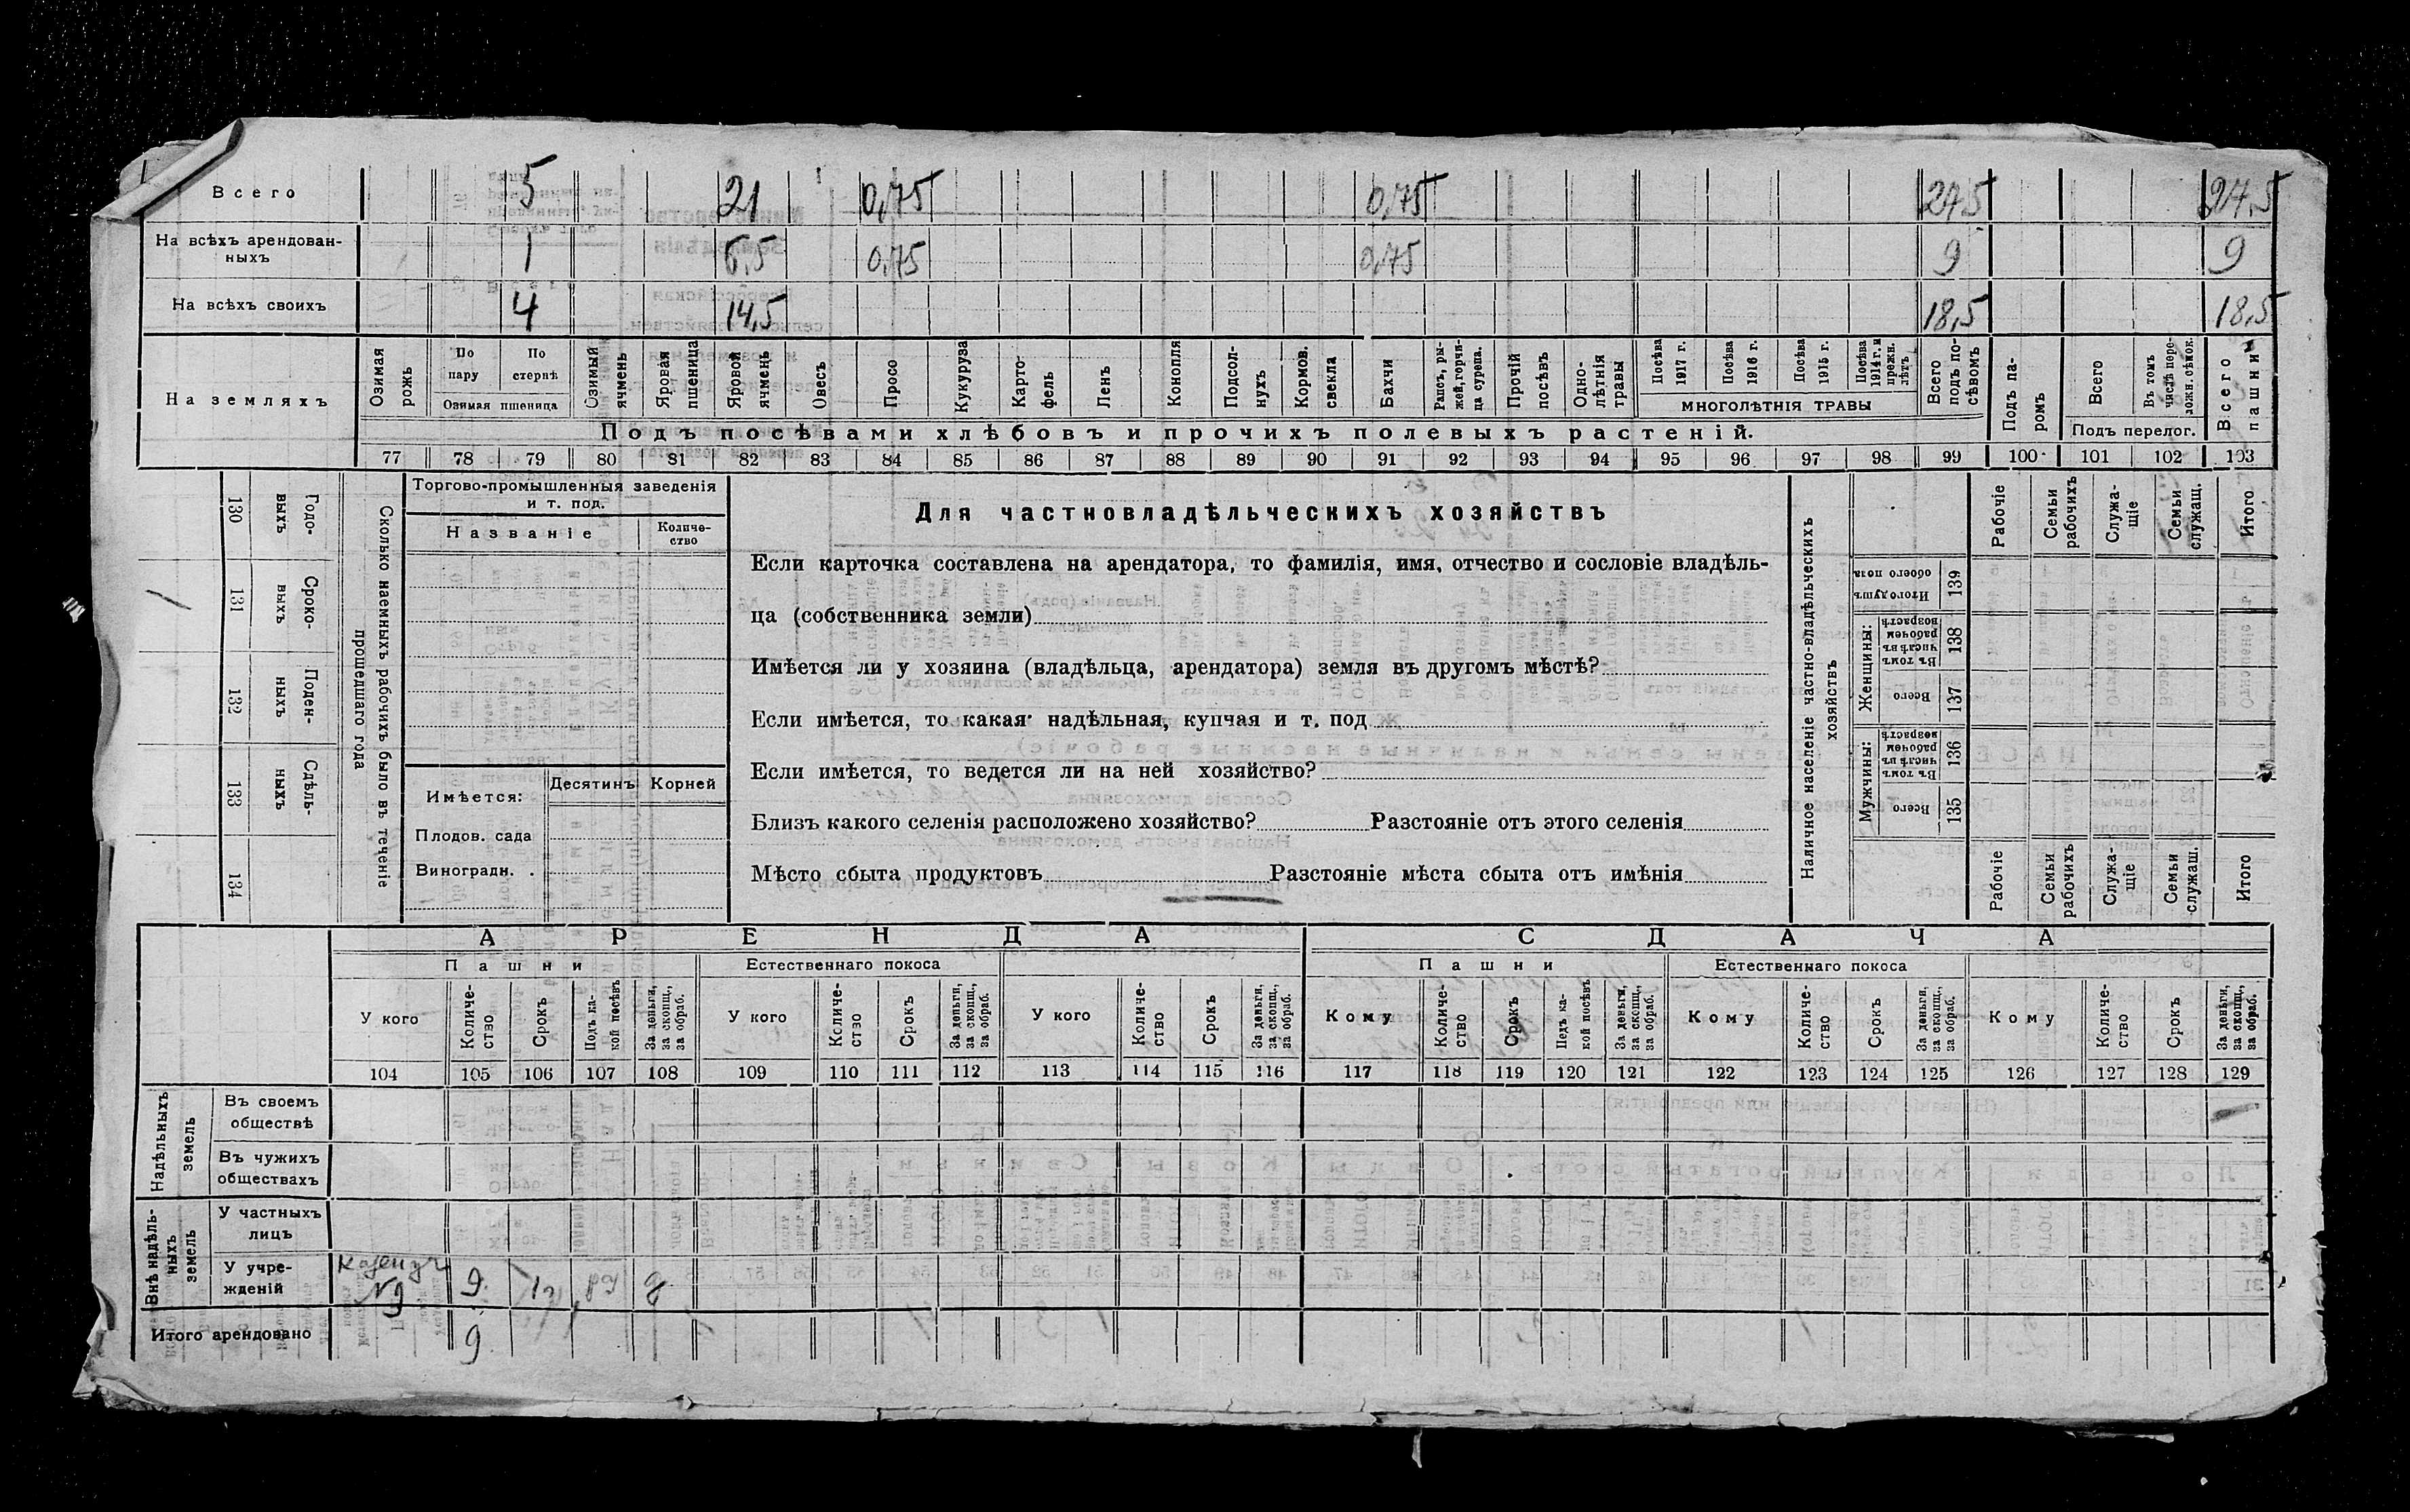 Всего 5 21 0,75 0,75 27,5 27,5
На всѣхъ арендован-
ныхъ 1 6,5 0,75 0,75 9 9
На всѣхъ своихъ 4 14,5 18,5 18,5
На земляхъ
Озимая
рожь
По
пару
По
стернѣ
Озимая пшеница
Озимый
ячмень
Яровая
пшеница
Яровой
ячмень
Овесъ
Просо
Кукуруза
Карто-
фель
Ленъ
Конопля
Подсол-
нухъ
Кормов.
свекла
Бахчи
Рапсъ, ры-
жей, горчи-
ца сурепа.
Прочій
посѣвъ
Одно-
лѣтнія
травы
Посѣва
1917 г.
Посѣва
1916 г.
Посѣва
1915 г.
Посѣва
1914 г. и
прежн.
лѣтъ
МНОГОЛѢТНІЯ ТРАВЫ
Всего
подъ по-
сѣвомъ
Подъ па-
ромъ
Всего
Въ томъ
числѣ пере-
ложн. сѣнок.
Подъ перелог.
Всего
пашни
Подъ посѣвами хлѣбовъ и прочихъ полевыхъ растеній.
77 78 79 80 81 82 83 84 85 86 87 88 89 90 91 92 93 94 95 96 97 98 99 100 101 102 103
Сколько наемныхъ рабочихъ было въ теченіе
прошедшаго года
Годо-
выхъ
130
Сроко-
выхъ
131
Поден-
ныхъ
132
Сдѣль-
ныхъ
133
134
Торгово-промышленныя заведенія
и т. под.
Названіе
Количе-
ство
Имѣется: Десятинъ Корней
Плодов. сада
Виноградн. .
Для частновладѣльческихъ хозяйствъ
Если карточка составлена на арендатора, то фамилія, имя, отчество и сословіе владѣль-
ца (собственника земли)
Имѣется ли у хозяина (владѣльца, арендатора) земля въ другомъ мѣстѣ?
Если имѣется, то какая надѣльная, купчая и т. под
Если имѣется, то ведется ли на ней хозяйство?
Близъ какого селенія расположено хозяйство? Разстояніе отъ этого селенія
Мѣсто сбыта продуктовъ Разстояніе мѣста сбыта отъ имѣнія
Наличное населеніе частно-владѣльческихъ
хозяйствъ
Рабочіе
Семьи
рабочихъ
Служа-
щіе
Семьи
служащ.
Итого
Итого душъ
обоего пола
139
Женщины:
Въ томъ
числѣ въ
рабочемъ
возрастѣ
138
Всего
137
Мужчины:
Въ томъ
числѣ въ
рабочемъ
возрастѣ
136
Всего
135
Рабочіе
Семьи
рабочихъ
Служа-
щіе
Семьи
служащ.
Итого
АРЕНДА СДАЧА
Пашни Естественнаго покоса Пашни Естественнаго покоса
У кого
Количе-
ство
Срокъ
Подъ ка-
кой посѣвъ
За деньги,
за скопщ.,
за обраб.
У кого
Количе-
ство
Срокъ
За деньги,
за скопщ.,
за обраб.
У кого
Количе-
ство
Срокъ
За деньги,
за скопщ.,
за обраб.
Кому
Количе-
ство
Срокъ
Подъ ка-
кой посѣвъ
За деньги,
за скопщ.,
за обраб.
Кому
Количе-
ство
Срокъ
За деньги,
за скопщ.,
за обраб.
Кому
Количе-
ство
Срокъ
За деньги,
за скопщ.,
за обраб.
104 105 106 107 108 109 110 111 112 113 114 115 116 117 118 119 120 121 122 123 124 125 126 127 128 129
Надѣльныхъ
земель
Въ своемъ
обществѣ
Въ чужихъ
обществахъ
Внѣ надѣль-
ныхъ
земель
У частныхъ
лицъ
У учре-
жденій
9
Итого арендовано 9